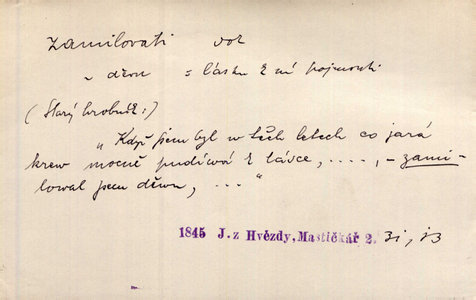 zamilovati dok
~ děvu = lásku k ní pojmouti
(Starý hrobník:)
"Když jsem byl w těch letech co jará
krew mocně pudívá k lásce, ...., - zami-
lowal jsem děwu, ..."
1845 J. z Hvězdy, Mastičkář 2.